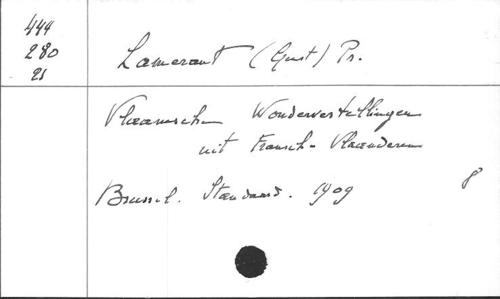 444
280
21
Lamerant (Gust) Pr.
Vlaamsche Wondervertellingen
uit Fransch-Vlaanderen
Brussel. Standaard. 1909
8